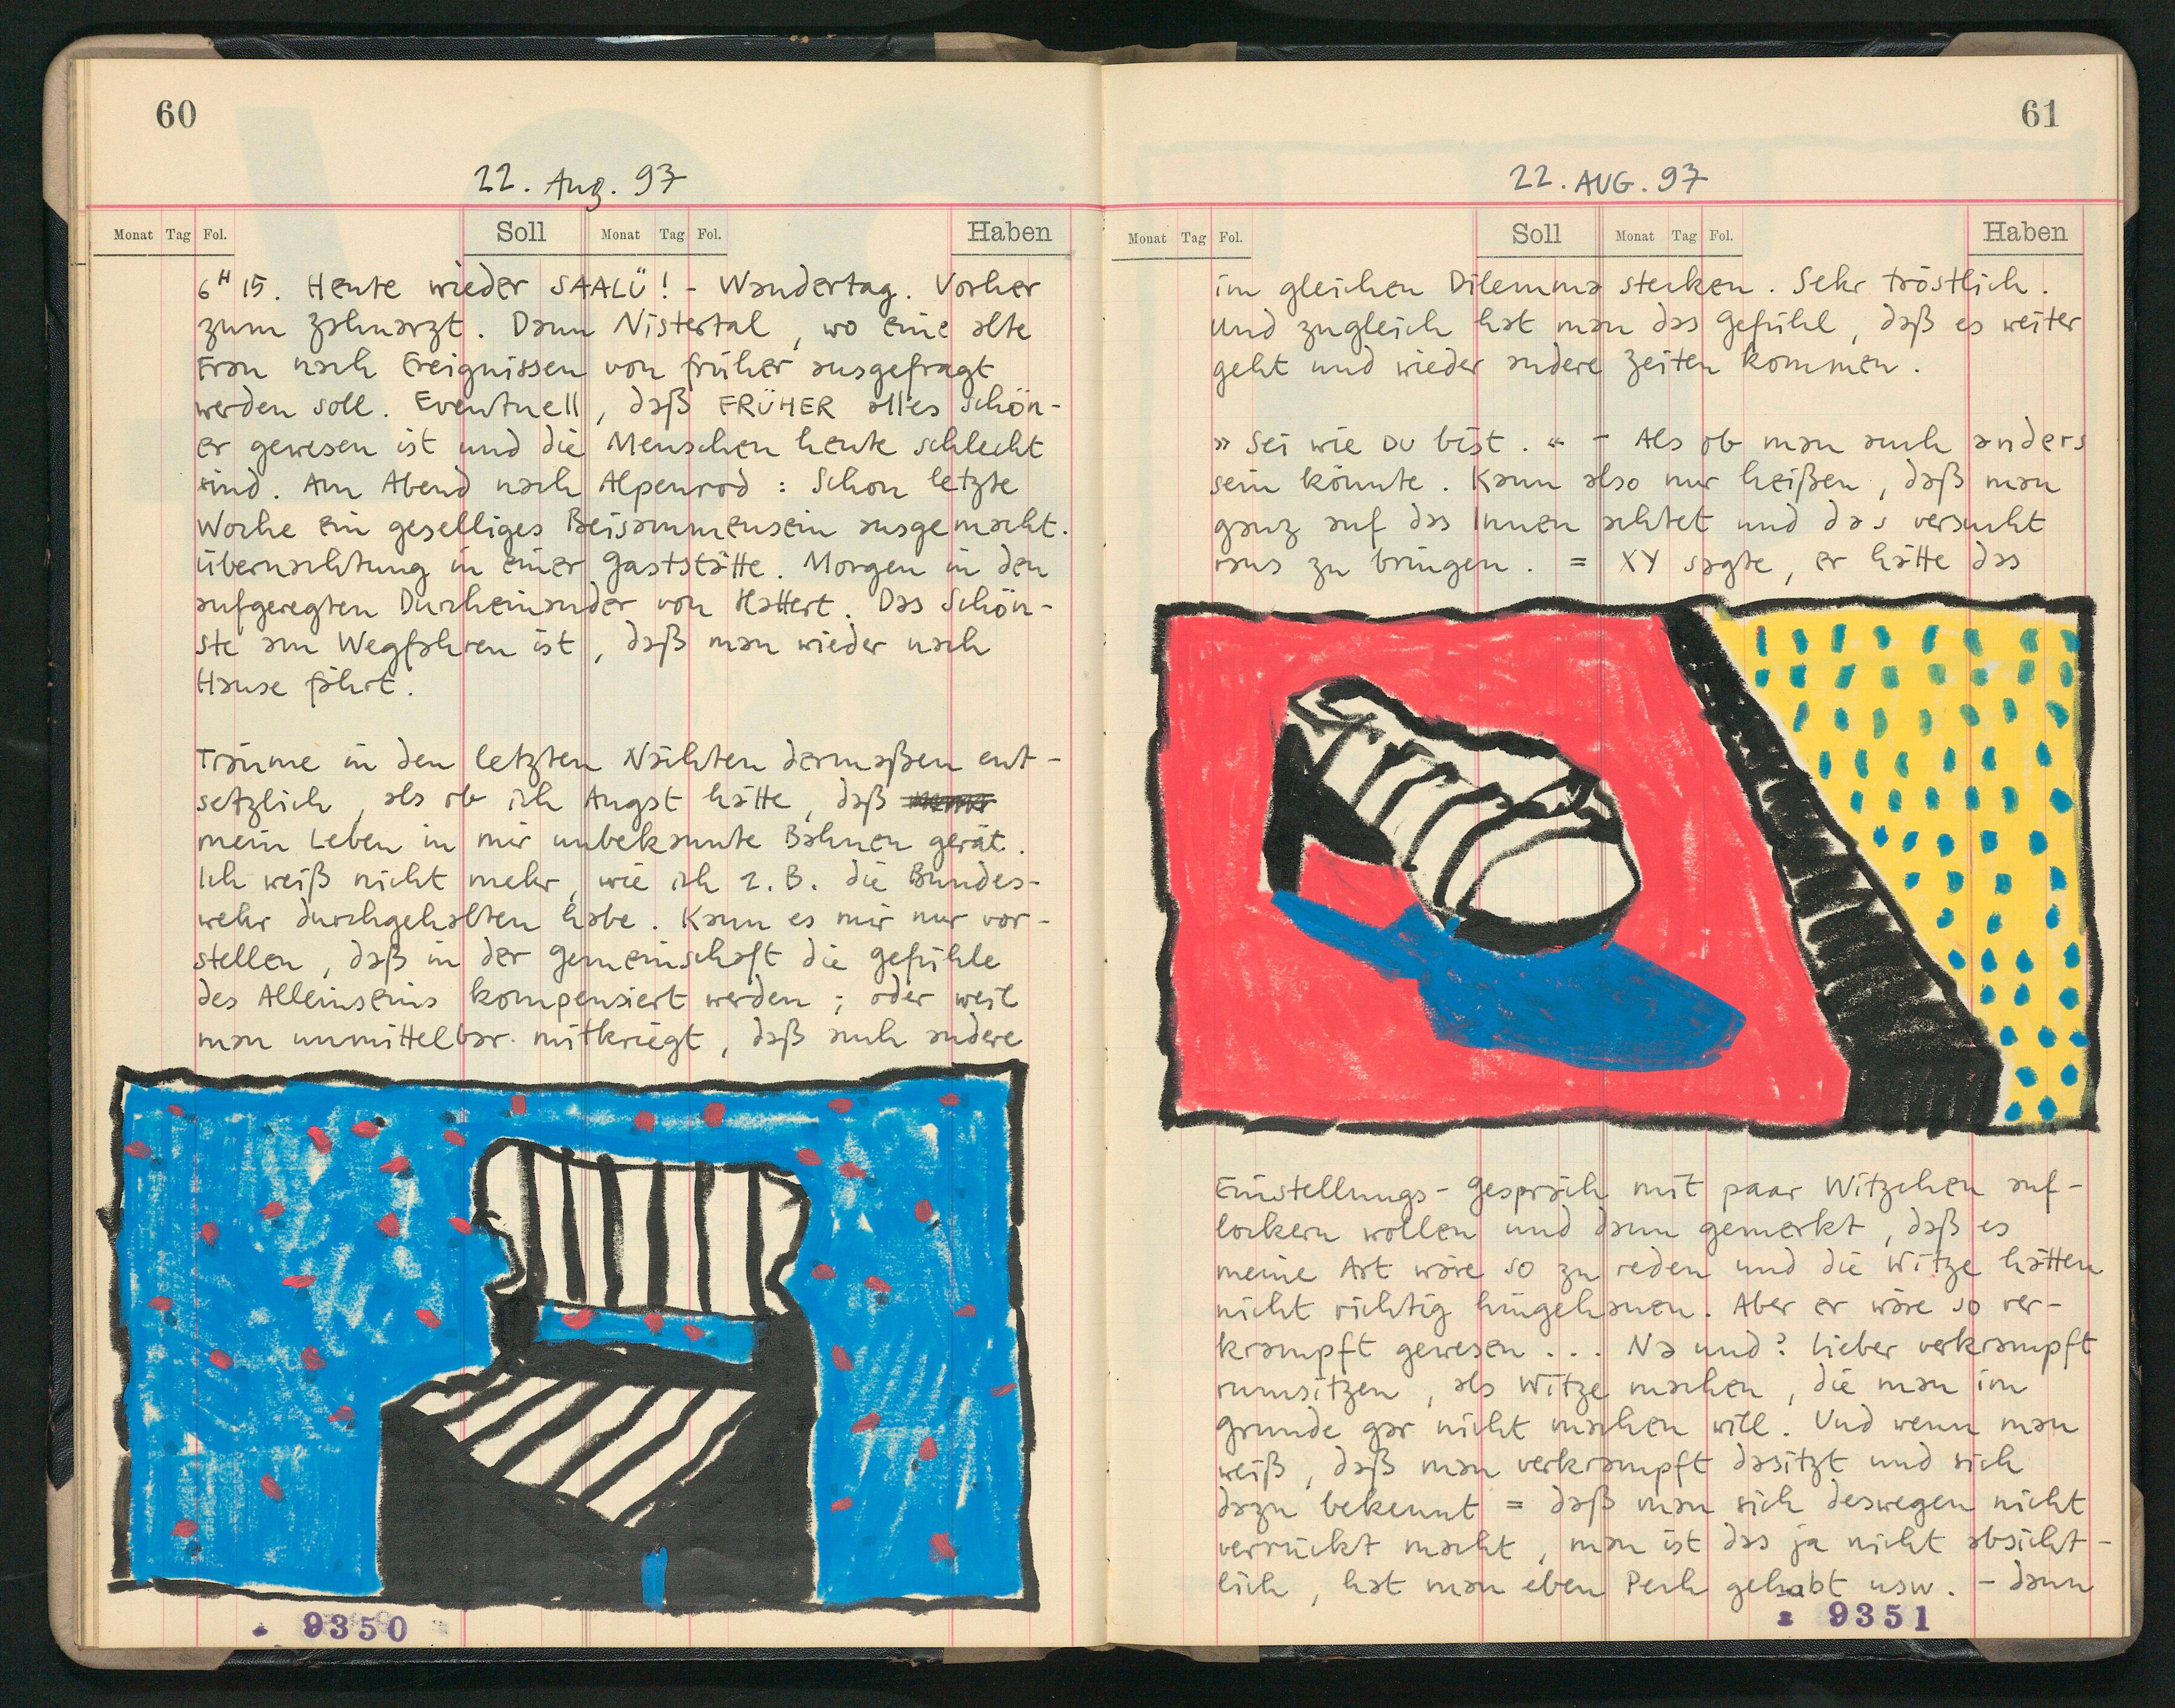 60
22. Aug. 97
Monat Tag Fol. Soll Monat Tag Fol. Haben
6H15. Heute wieder SAALÜ! - Wandertag. Vorher
zum Zahnarzt. Dann Nistertal, wo eine alte
Frau nach Ereignissen von früher ausgefragt
werden soll. Eventuell, daß FRÜHER alles schön-
er gewesen ist und die Menschen heute schlecht
sind. Am Abend nach Alpenrod: Schon letzte
Woche ein geselliges Beisammensein ausgemacht.
Übernachtung in einer Gaststätte. Morgen in den
aufgeregten Durcheinander von Hattert. Das Schön-
ste am Wegfahren ist, daß man wieder nach
Hause fährt.
Träume in den letzten Nächten dermaßen ent-
setzlich, als ob ich Angst hätte, daß
mein Leben in mir unbekannte Bahnen gerät.
Ich weiß nicht mehr, wie ich z.B. die Bundes-
wehr durchgehalten habe. Kann es mir nur vor-
stellen, daß in der Gemeinschaft die Gefühle
des Alleinseins kompensiert werden; oder weil
man unmittelbar mitkriegt, daß auch andere
9350
61
22. AUG. 97
Monat Tag Fol. Soll Monat Tag Fol. Haben
im gleichen Dilemma stecken. Sehr tröstlich.
Und zugleich hat man das Gefühl, daß es weiter
geht und wieder andere Zeiten kommen.
»Sei wie DU bist.« - Als ob man auch anders
sein könnte. Kann also nur heißen, daß man
ganz auf das Innen achtet und das versucht
raus zu bringen. = XY sagte, er hätte das
Einstellungs-Gespräch mit paar Witzchen auf-
lockern wollen und dann gemerkt, daß es
meine Art wäre so zu reden und die Witze hätten
nicht richtig hingehauen. Aber er wäre so ver-
krampft gewesen... Na und? Lieber verkrampft
rumsitzen, als Witze machen, die man im
Grunde gar nicht machen will. Und wenn man
weiß, daß man verkrampft dasitzt und sich
dazu bekennt = daß man sich deswegen nicht
verrückt macht, man ist das ja nicht absicht-
lich, hat man eben Pech gehabt usw. - dann
9351